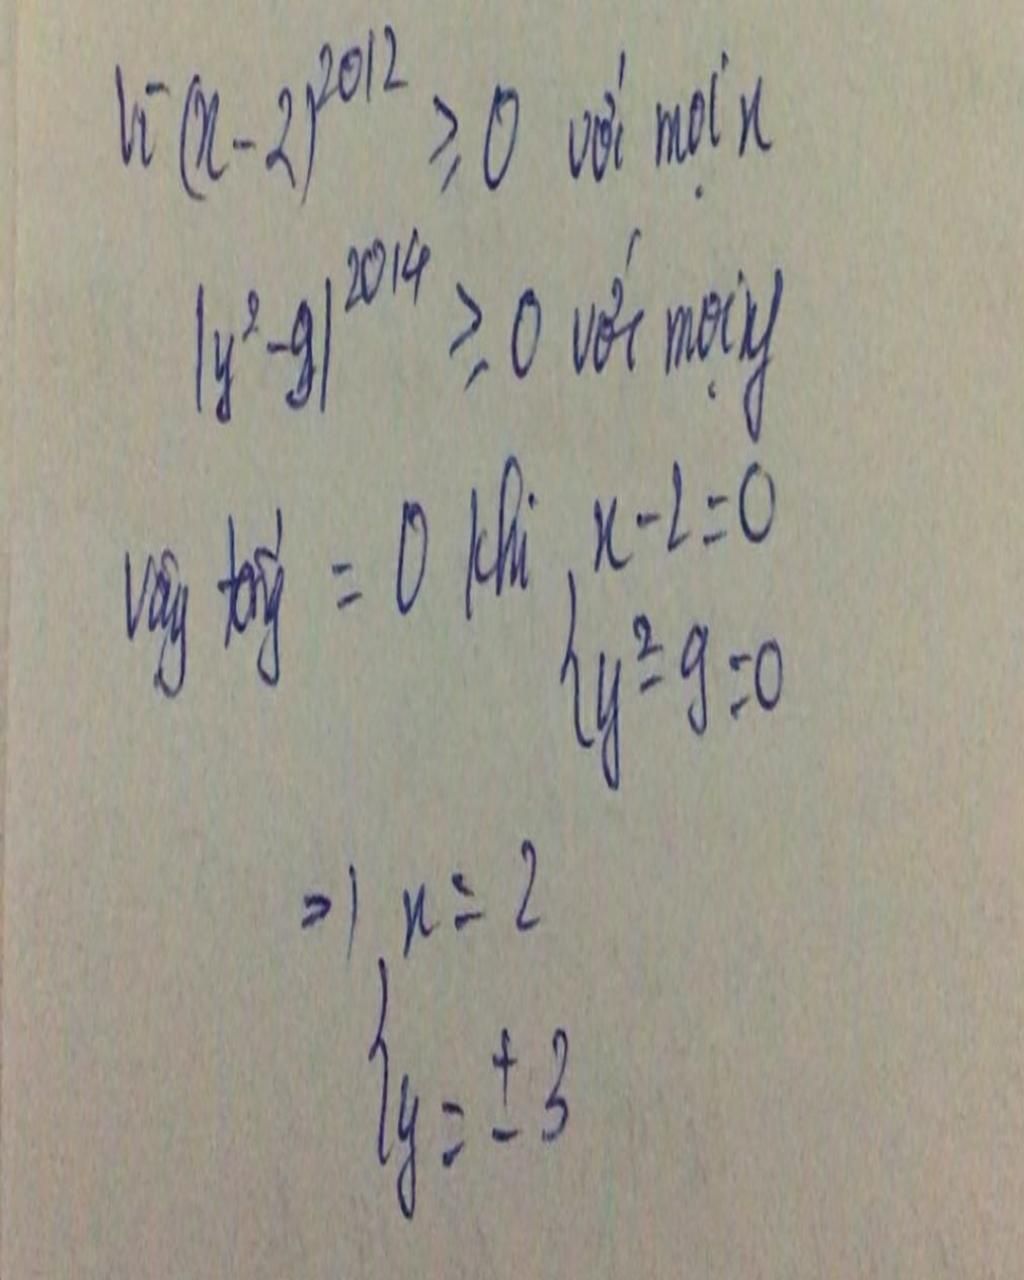 Vì (x-2)^2012 ≥ 0 với mọi x
|y²-9|^2014 ≥ 0 với mọi y
Vậy tổng = 0 khi { x-2=0
y²-9=0
=> { x = 2
y = ± 3